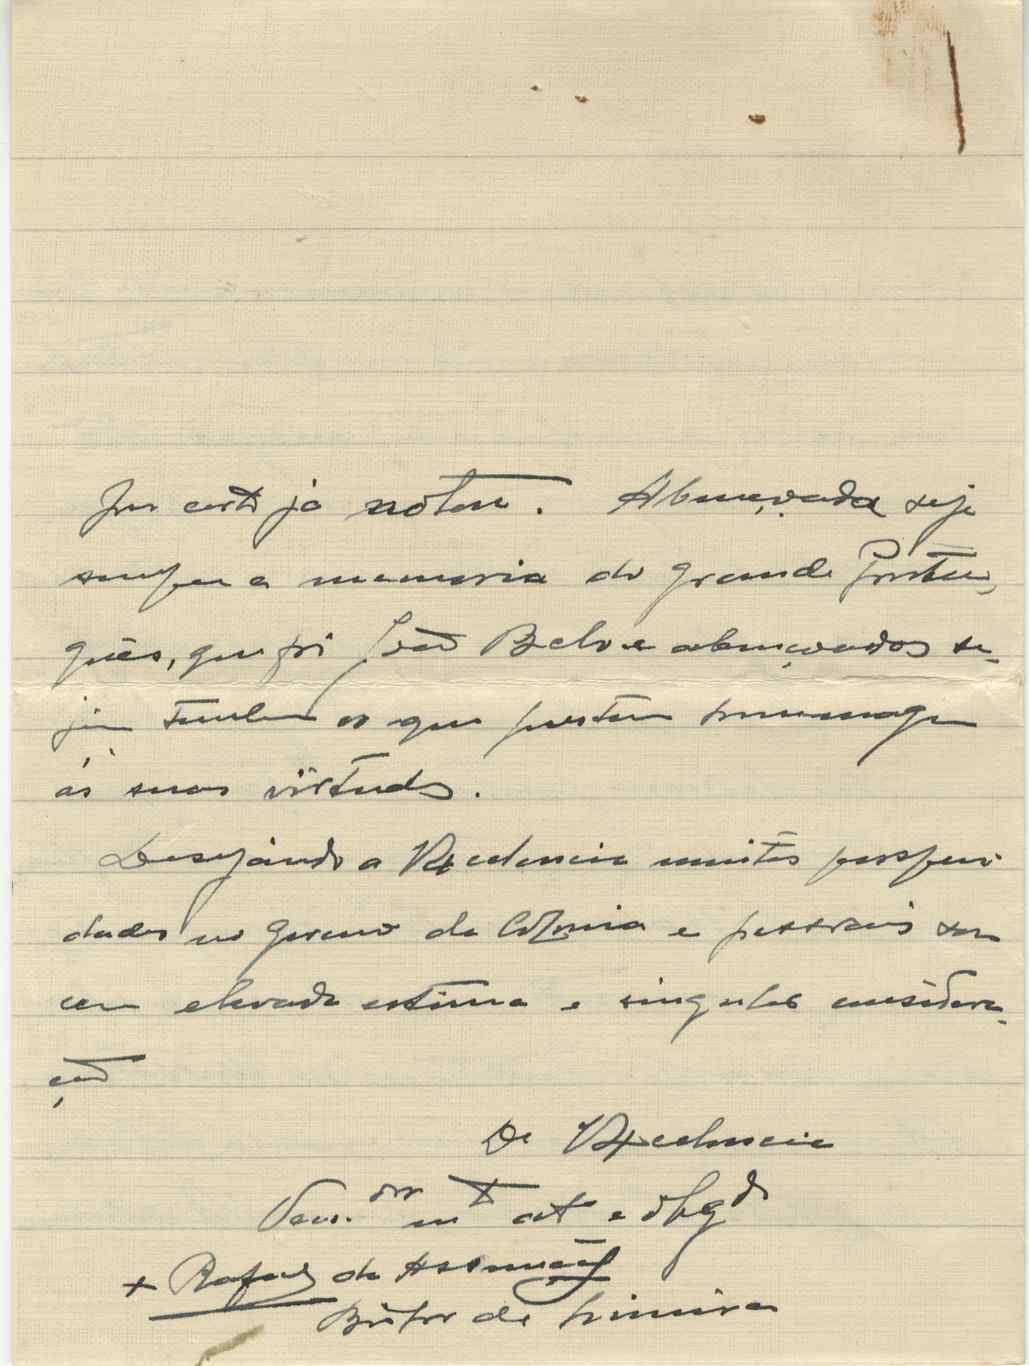 por certo já notou. Abençoada seja
sempre a memoria do grande Portu-
guês, que foi João Belo e abençoados se-
jam tambem os que prestam homenagem
ás suas virtudes.
Desejando a VExcelencia muitas prosperi
dades no Governo da Colonia e pessoais sou
com elevada estima e singular considera-
ção
De VExcelencia
Ven.dor mto att e obgdo
+ Rafael da Assunção
Bispo de Limira